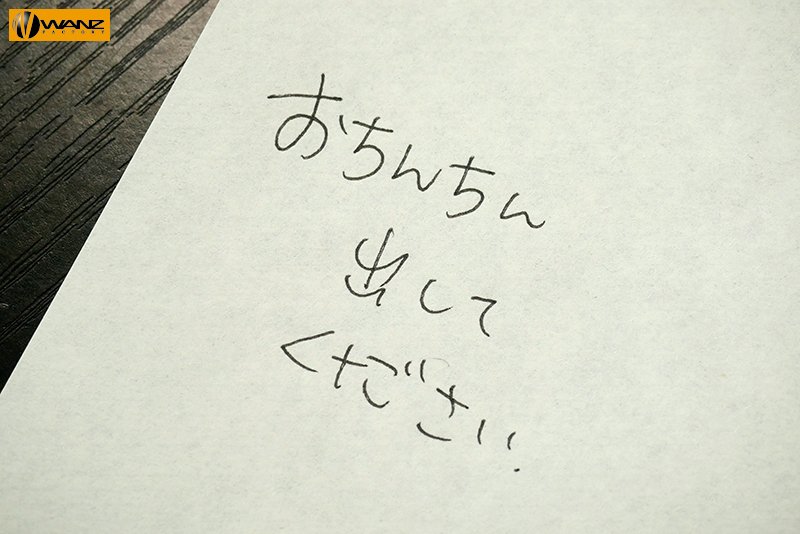 WANZ
FACTORY
おちんちん
出して
ください.